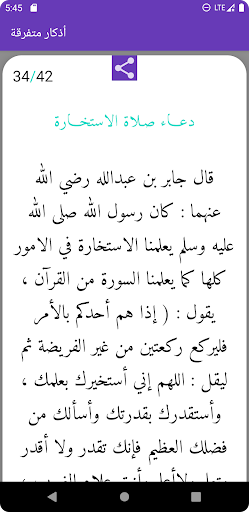 5:45
LTE
أذكار متفرقة
34/42
دعاء صلاة الاستخارة
قال جابر بن عبدالله رضي الله
عنهما : كان رسول الله صلى الله
عليه وسلم يعلمنا الاستخارة في الامور
كلها كما يعلمنا السورة من القرآن ،
يقول : ( إذا هم أحدكم بالأمر
فليركع ركعتين من غير الفريضة ثم
ليقل : اللهم إني أستخيرك بعلمك ،
وأستقدرك بقدرتك وأسألك من
فضلك العظيم فإنك تقدر ولا أقدر